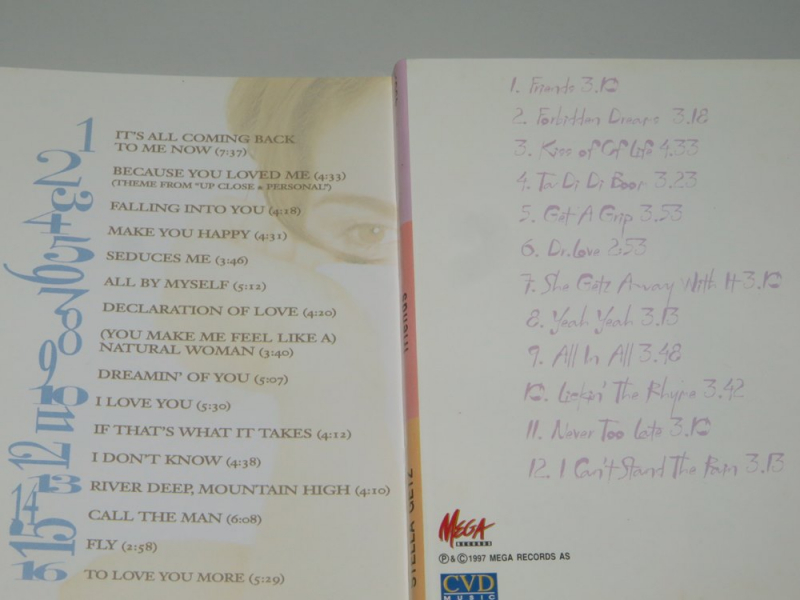 1 IT'S ALL COMING BACK
TO ME NOW (7:37)
2 BECAUSE YOU LOVED ME (4:33)
(THEME FROM "UP CLOSE & PERSONAL")
3 FALLING INTO YOU (4:18)
4 MAKE YOU HAPPY (4:31)
5 SEDUCES ME (3:46)
6 ALL BY MYSELF (5:12)
7 DECLARATION OF LOVE (4:20)
8 (YOU MAKE ME FEEL LIKE A)
NATURAL WOMAN (3:40)
9 DREAMIN' OF YOU (5:07)
10 I LOVE YOU (5:30)
11 IF THAT'S WHAT IT TAKES (4:12)
12 I DON'T KNOW (4:38)
13 RIVER DEEP, MOUNTAIN HIGH (4:10)
14 CALL THE MAN (6:08)
15 FLY (2:58)
16 TO LOVE YOU MORE (5:29)
friends
STELLA GETZ
1. Friends 3.10
2. Forbidden Dreams 3.18
3. Kiss of Life 4.33
4. Ta Di Di Boom 3.23
5. Get A Grip 3.53
6. Dr. Love 2:53
7. She Getz Away With It 3.10
8. Yeah Yeah 3.13
9. All In All 3.48
10. Lickin' The Rhyme 3.42
11. Never Too Late 3.10
12. I Can't Stand The Rain 3.13
MEGA
RECORDS
℗ & © 1997 MEGA RECORDS AS
CVD
MUSIC